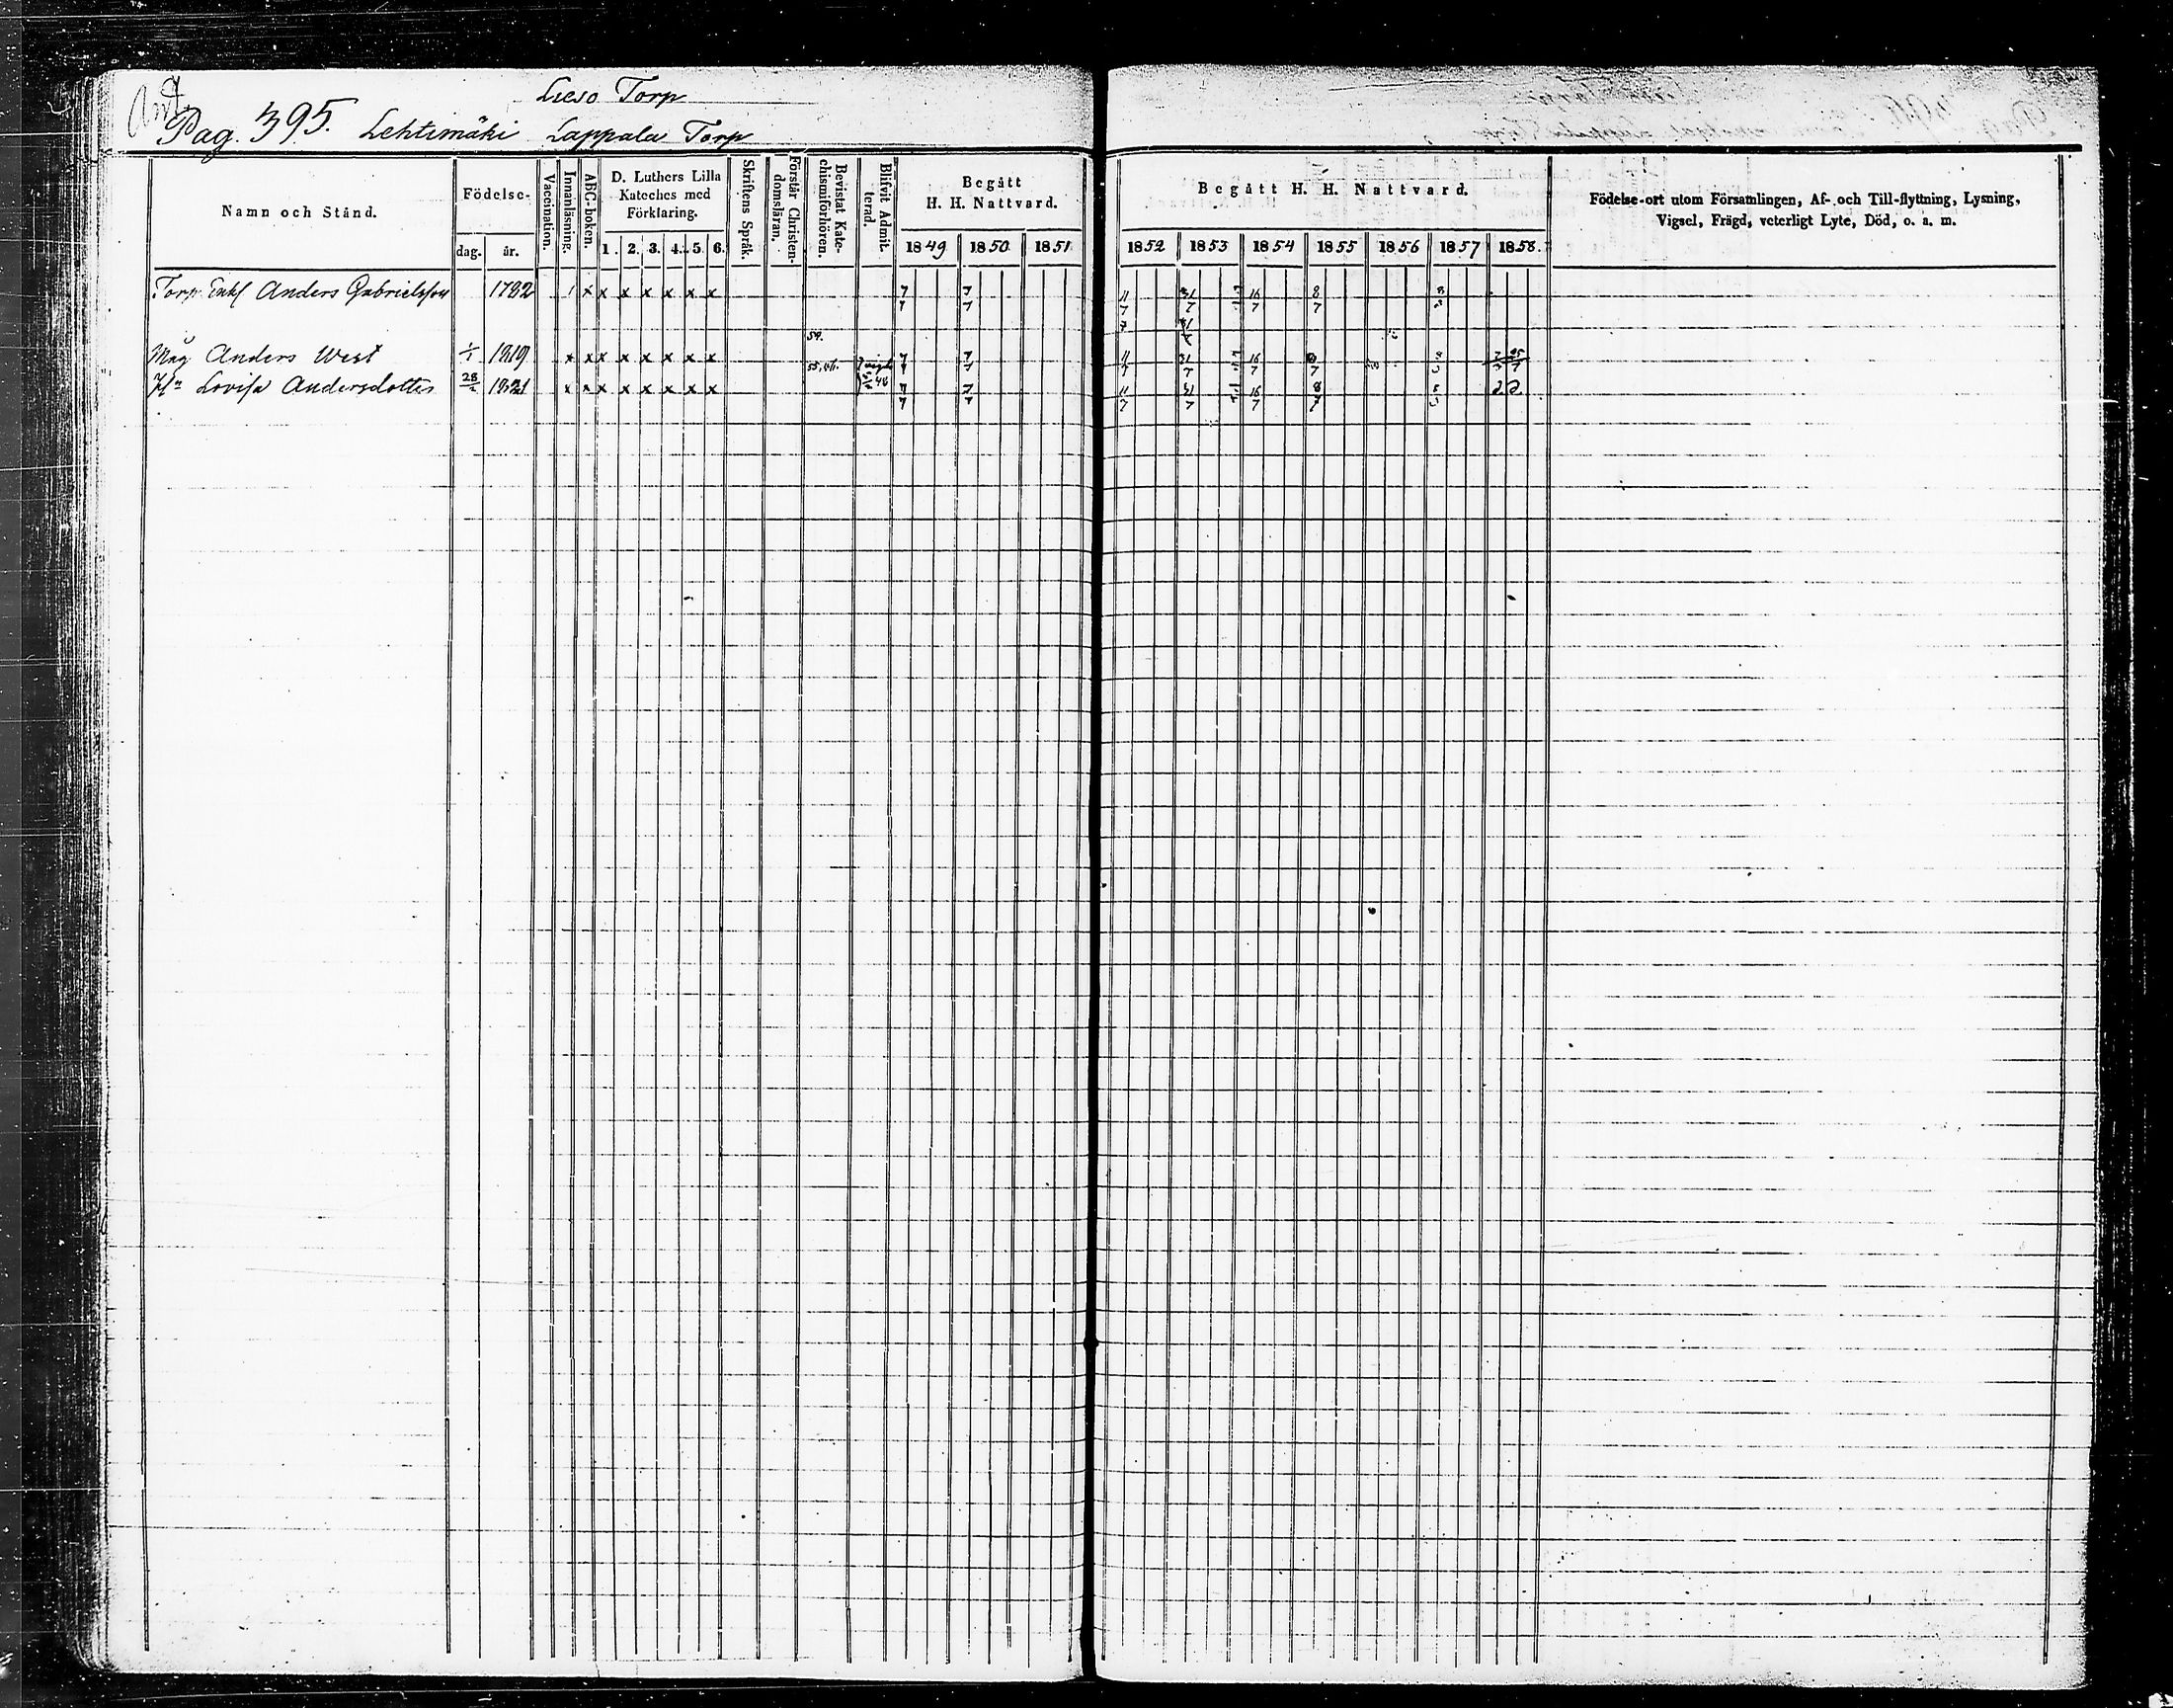 Lieso Torp
Pag. 395. Lehtimäki Lappala Torp
Namn och Stånd.
Födelse-
dag. år.
Vaccination.
Innanläsning.
ABC-boken.
D. Luthers Lilla
Kateches med
Förklaring.
1. 2. 3. 4. 5. 6.
Skriftens Språk.
Förstår Christen-
domsläran.
Bevistat Kate-
chismiförhören.
Blifvit Admit-
terad.
Begått
H. H. Nattvard.
1849 1850 1851
Begått H. H. Nattvard.
1852 1853 1854 1855 1856 1857 1858.
Födelse-ort utom Församlingen, Af- och Till-flyttning, Lysning,
Vigsel, Frägd, veterligt Lyte, Död, o. a. m.
Torp. Enkl Anders Gabrielsson 1782 x x x x x x x 7 7 11 31 16 8
7 7 7 7 7 7
54.
Måg Anders West 1/1 1819 x x x x x x x x 7 7 11 31 16
Hu Lovisa Andersdotter 28 1821 x x x x x x x x 7 7 11 31 16 8
7 7 7 7 7 7